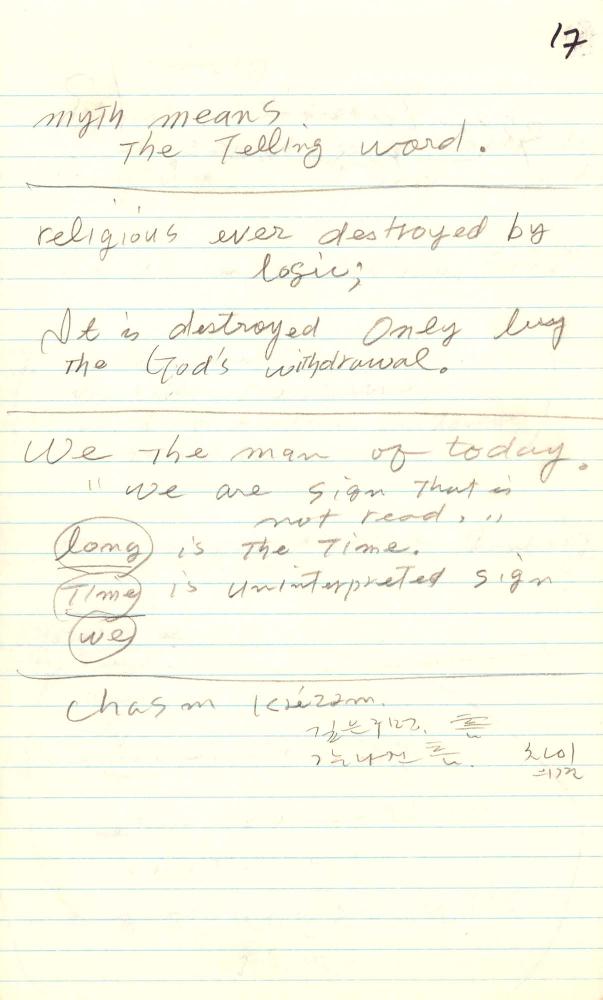 17
myth means
The Telling word.
religious ever destroyed by
logic;
It is destroyed Only by
The God's withdrawal.
We The man of today.
"we are sign That is
not read."
long is The Time.
Time is uninterpreted sign
we
chasm
깊은 구멍. 틈
갈라진 틈. 차이